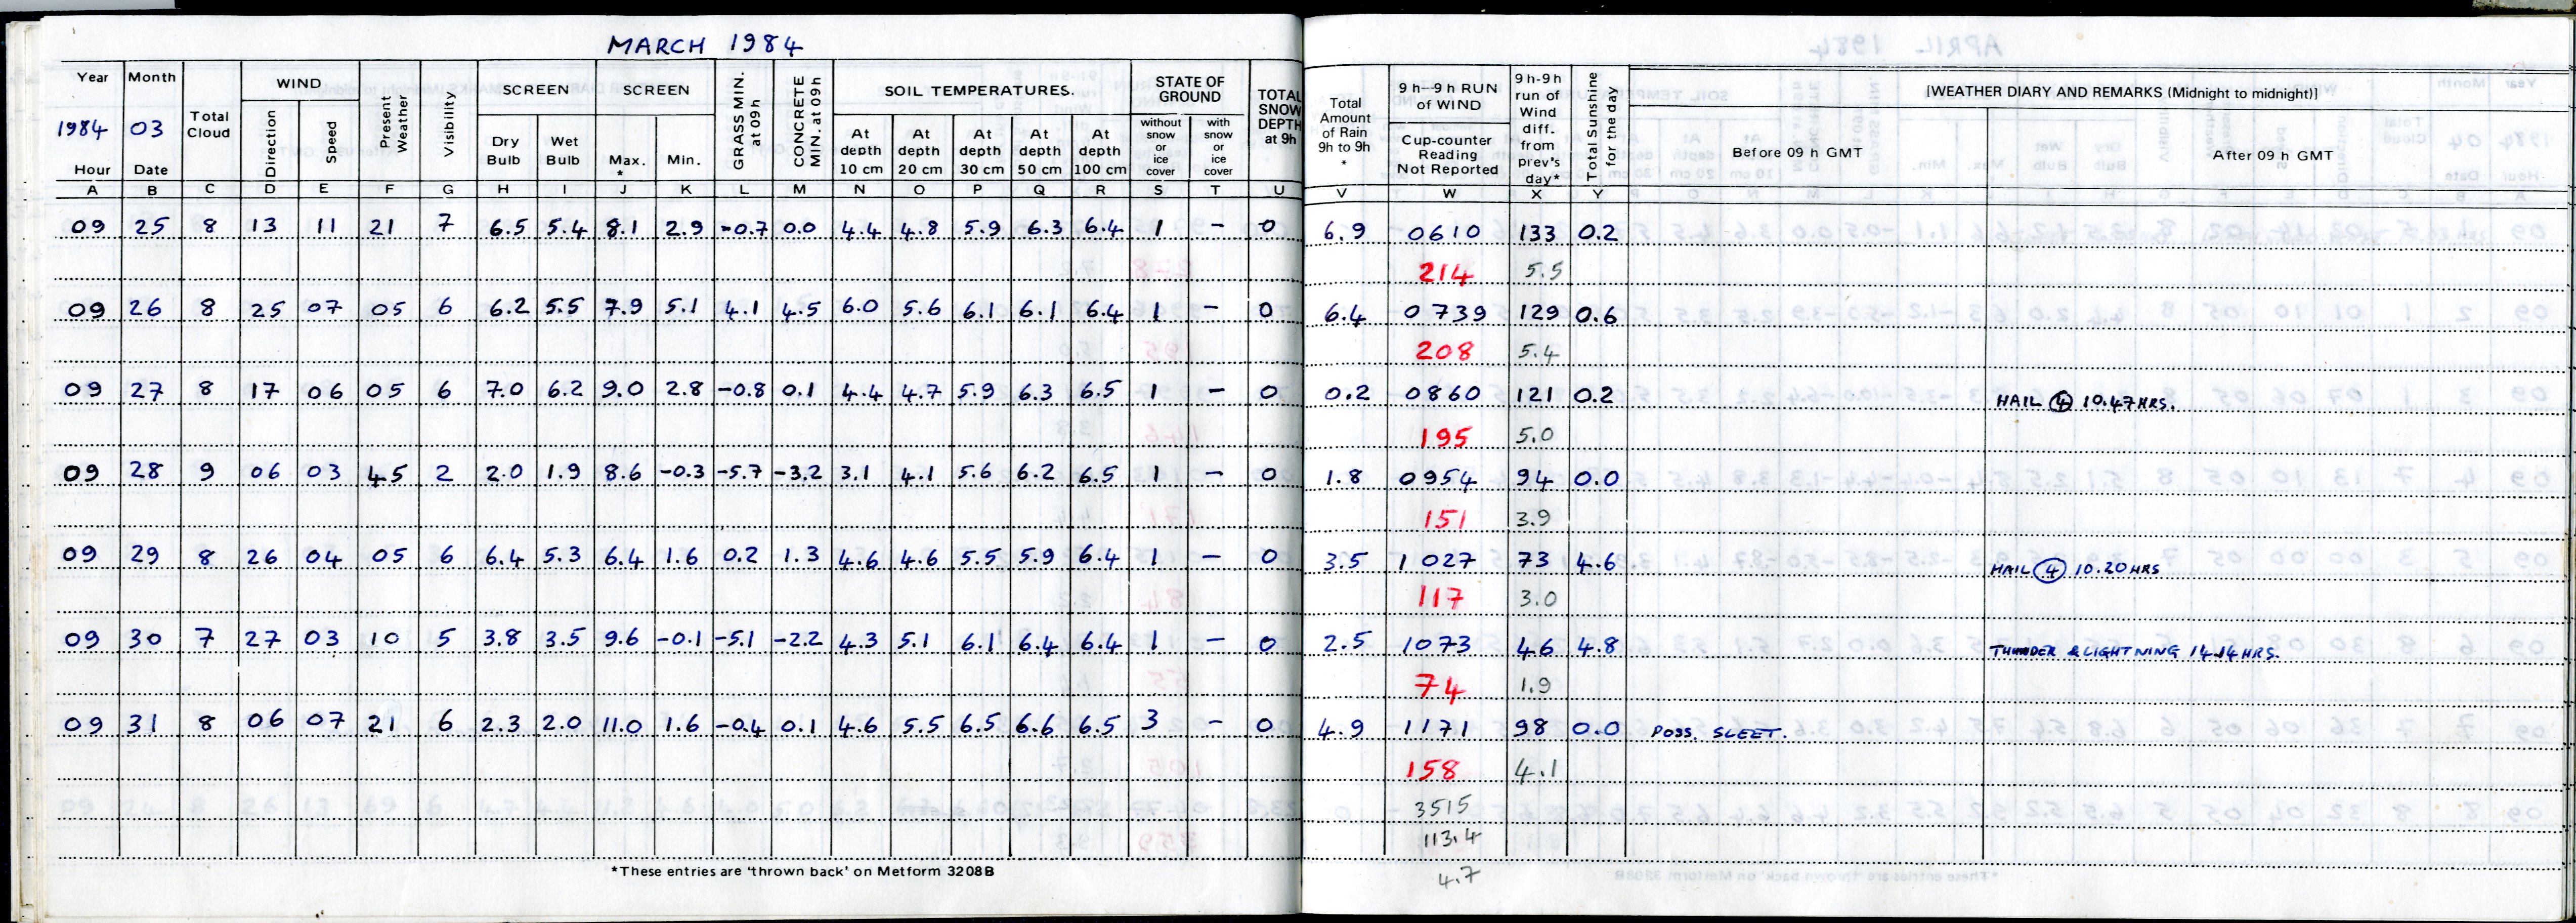 MARCH 1984
Year Month Total Cloud WIND Direction Speed Present Weather Visibility SCREEN Dry Bulb Wet Bulb SCREEN Max. * Min. GRASS MIN. at 09h CONCRETE MIN. at 09h SOIL TEMPERATURES. At depth 10 cm At depth 20 cm At depth 30 cm At depth 50 cm At depth 100 cm STATE OF GROUND without snow or ice cover with snow or ice cover TOTAL SNOW DEPTH at 9h Total Amount of Rain 9h to 9h * 9 h--9 h RUN of WIND Cup-counter Reading Not Reported 9 h-9 h run of Wind diff. from prev's day* Total Sunshine for the day [WEATHER DIARY AND REMARKS (Midnight to midnight)] Before 09 h GMT After 09 h GMT
1984 03
Hour Date
A B C D E F G H I J K L M N O P Q R S T U V W X Y
09 25 8 13 11 21 7 6.5 5.4 8.1 2.9 -0.7 0.0 4.4 4.8 5.9 6.3 6.4 1 - 0 6.9 0610 133 0.2
214 5.5
09 26 8 25 07 05 6 6.2 5.5 7.9 5.1 4.1 4.5 6.0 5.6 6.1 6.1 6.4 1 - 0 6.4 0739 129 0.6
208 5.4
09 27 8 17 06 05 6 7.0 6.2 9.0 2.8 -0.8 0.1 4.4 4.7 5.9 6.3 6.5 1 - 0 0.2 0860 121 0.2 HAIL 4 10.47 HRS.
195 5.0
09 28 9 06 03 45 2 2.0 1.9 8.6 -0.3 -5.7 -3.2 3.1 4.1 5.6 6.2 6.5 1 - 0 1.8 0954 94 0.0
151 3.9
09 29 8 26 04 05 6 6.4 5.3 6.4 1.6 0.2 1.3 4.6 4.6 5.5 5.9 6.4 1 - 0 3.5 1027 73 4.6 HAIL 4 10.20 HRS
117 3.0
09 30 7 27 03 10 5 3.8 3.5 9.6 -0.1 -5.1 -2.2 4.3 5.1 6.1 6.4 6.4 1 - 0 2.5 1073 46 4.8 THUNDER & LIGHTNING 14.14 HRS.
74 1.9
09 31 8 06 07 21 6 2.3 2.0 11.0 1.6 -0.4 0.1 4.6 5.5 6.5 6.6 6.5 3 - 0 4.9 1171 98 0.0 POSS. SLEET.
158 4.1
3515
113.4
4.7
*These entries are 'thrown back' on Metform 3208B